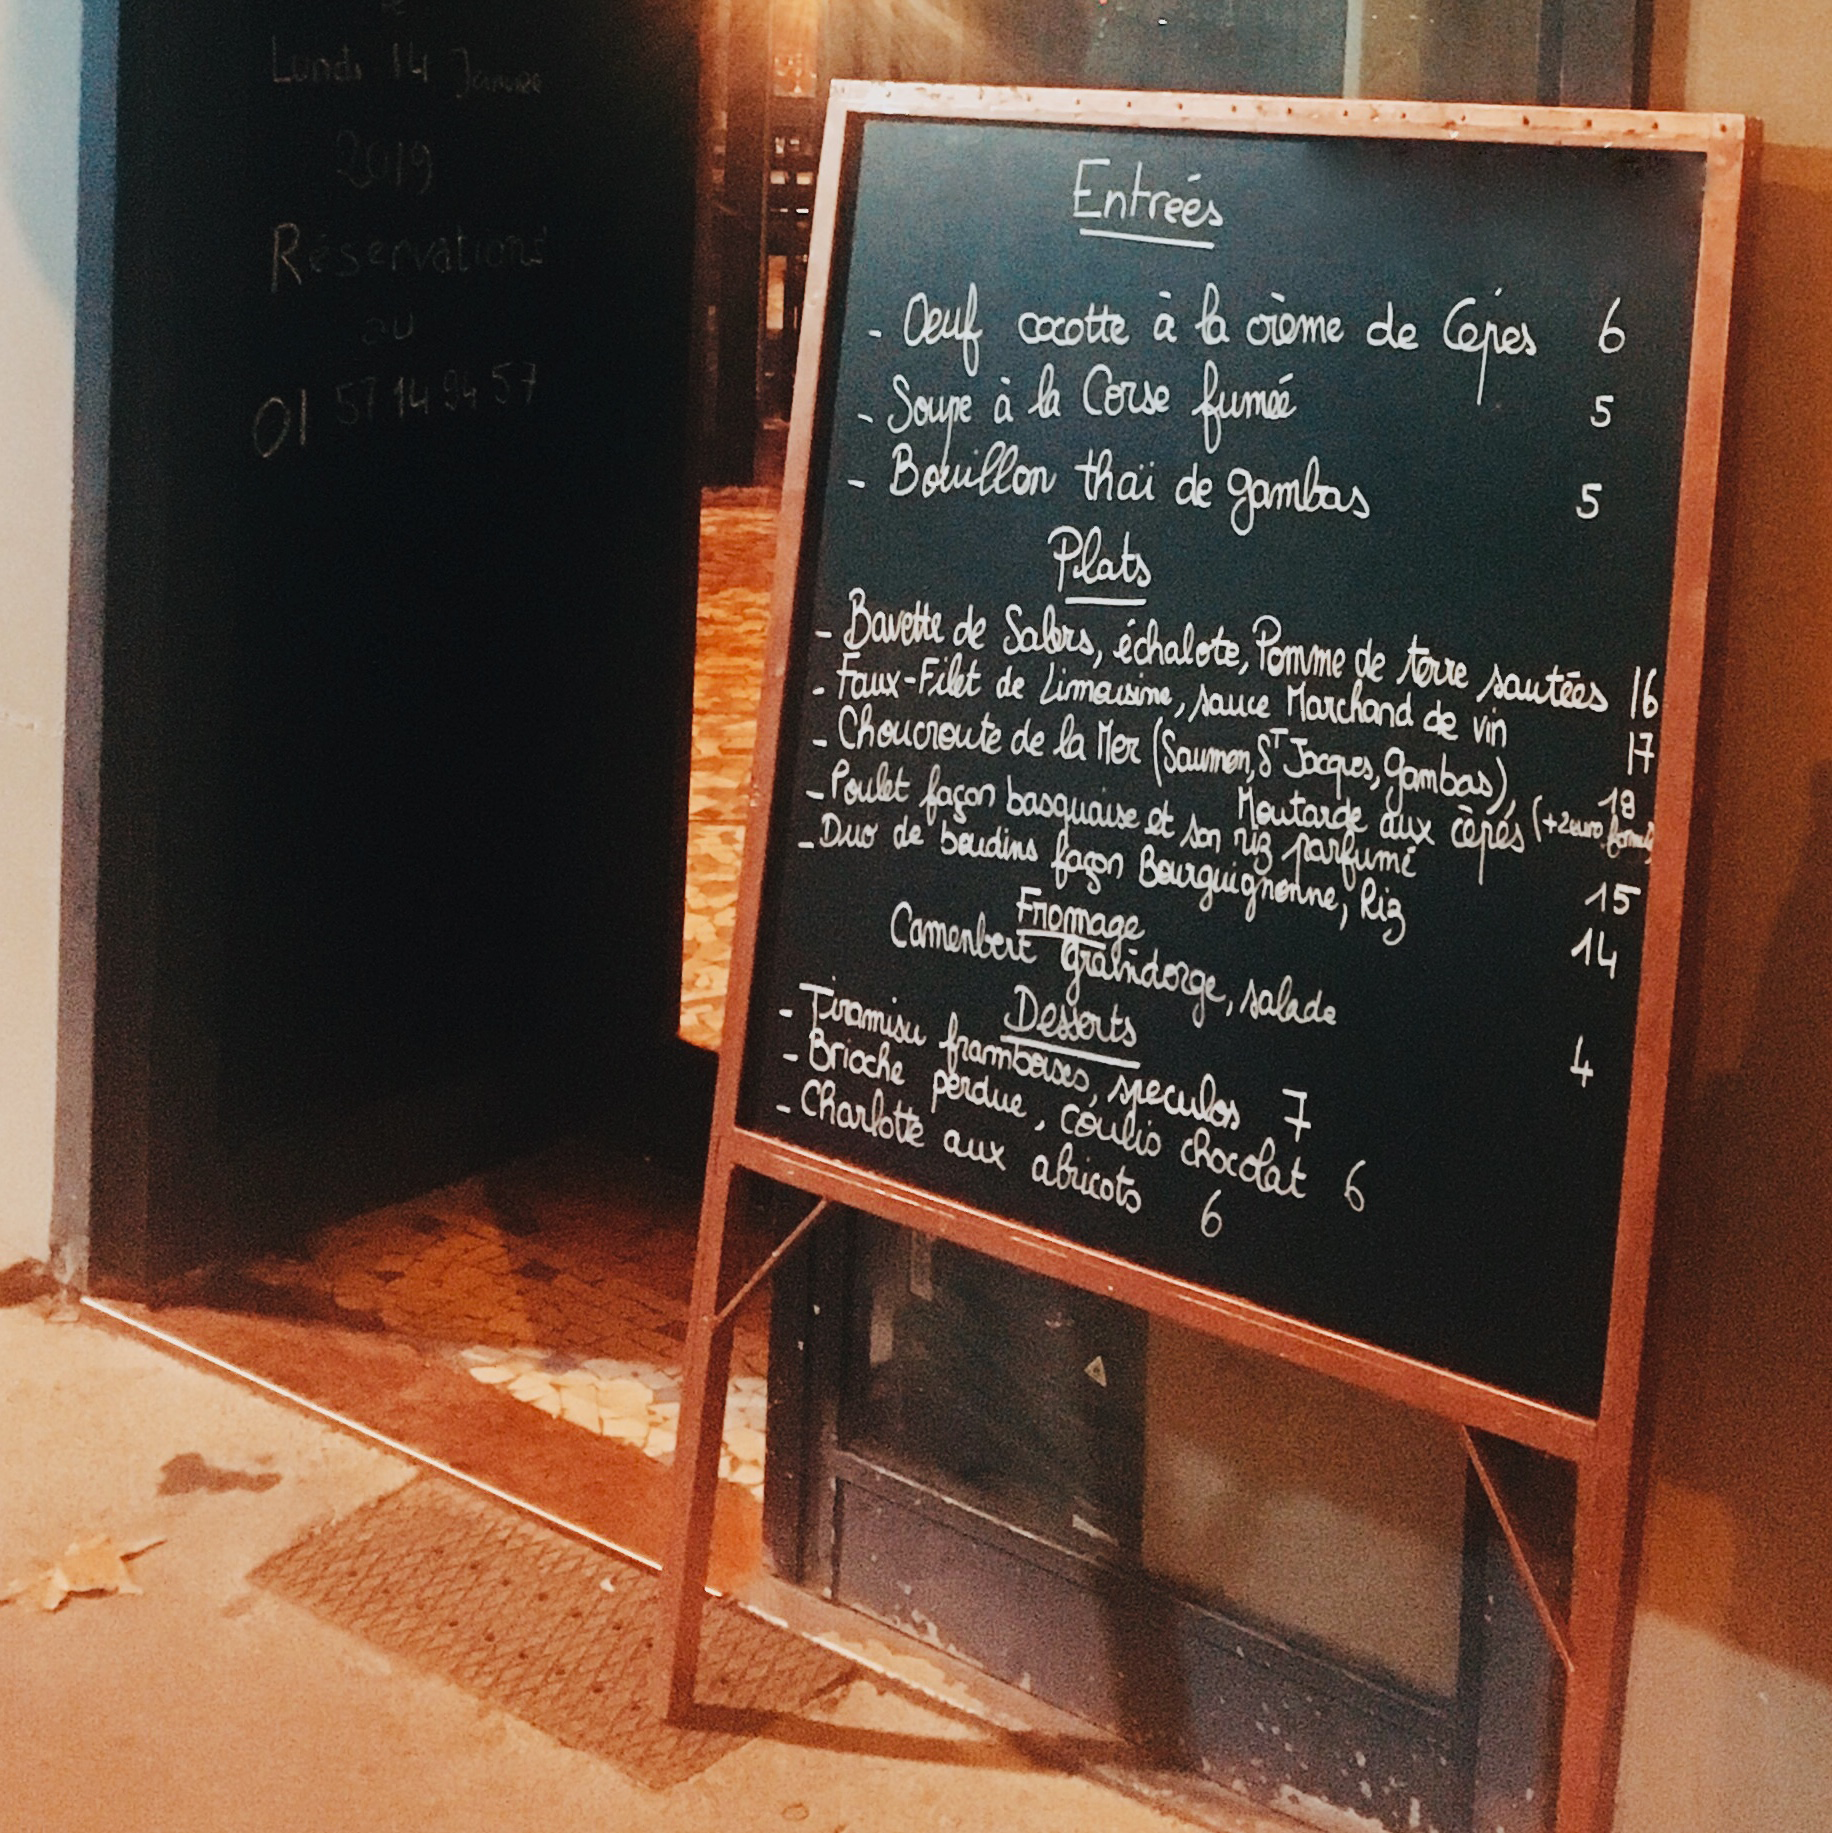 Lundi 14 Janvier
2019
Réservations
au
01 57 14 94 57
Entreés
- Oeuf cocotte à la crème de Cèpes 6
- Soupe à la Corse fumée 5
- Bouillon thaï de gambas 5
Plats
- Bavette de Salers, échalote, Pomme de terre sautées 16
- Faux-Filet de Limousine, sauce Marchand de vin 17
- Choucroute de la Mer (Saumon, ST Jacques, gambas), 18
Moutarde aux cèpes (+2euro
- Poulet façon basquaise et son riz parfumé 15
- Duo de boudins façon Bourguignonne, Riz 14
Fromage
Camenbert Graindorge, salade 4
Desserts
- Tiramisu framboises, speculos 7
- Brioche perdue, coulis chocolat 6
- Charlotte aux abricots 6